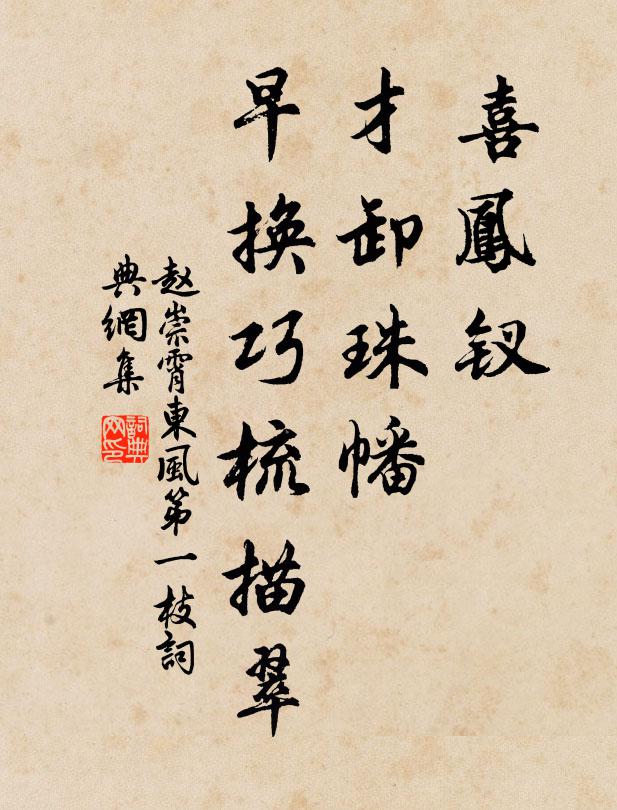 喜鳳钗
才卸珠幡
早換巧梳描翠
赵崇霄東風第一枝詞
典網集
詞典网印